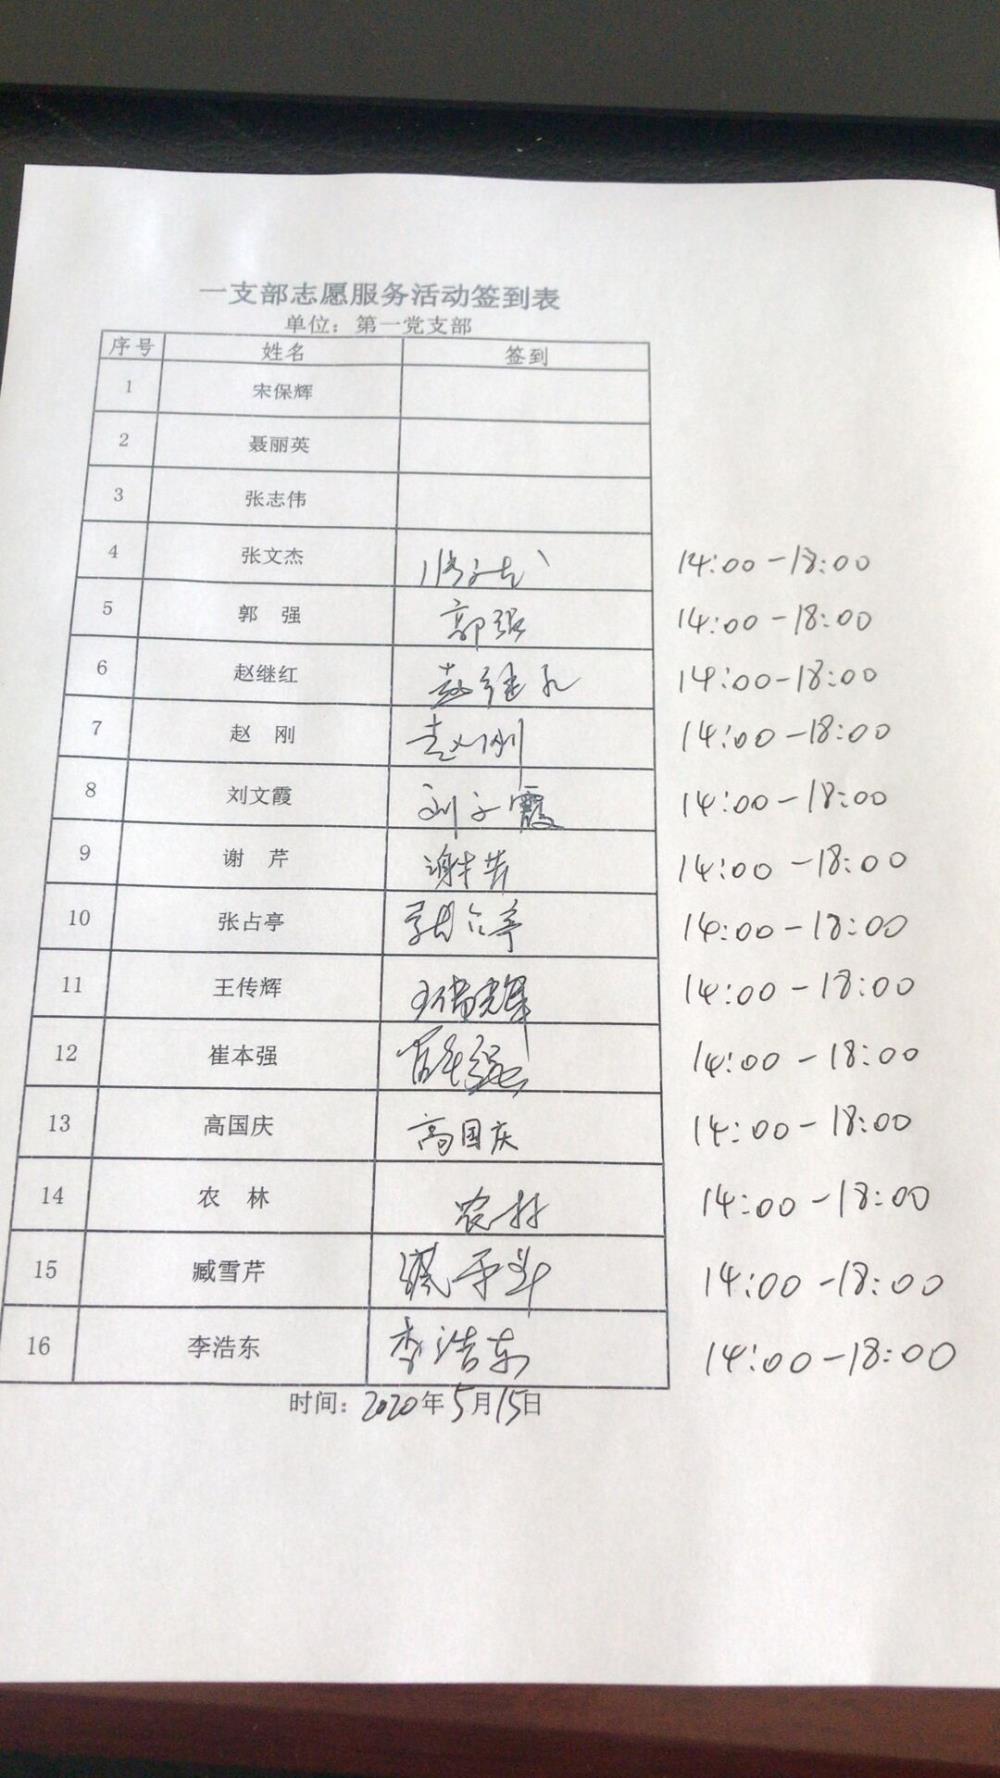 一支部志愿服务活动签到表
单位：第一党支部
序号 姓名 签到
1 宋保辉
2 聂丽英
3 张志伟
4 张文杰 14:00-18:00
5 郭 强 郭强 14:00-18:00
6 赵继红 赵继红 14:00-18:00
7 赵 刚 赵刚 14:00-18:00
8 刘文霞 刘文霞 14:00-18:00
9 谢 芹 谢芹 14:00-18:00
10 张占亭 张占亭 14:00-18:00
11 王传辉 王传辉 14:00-18:00
12 崔本强 崔本强 14:00-18:00
13 高国庆 高国庆 14:00-18:00
14 农 林 农林 14:00-18:00
15 臧雪芹 14:00-18:00
16 李浩东 李浩东 14:00-18:00
时间：2020年5月15日